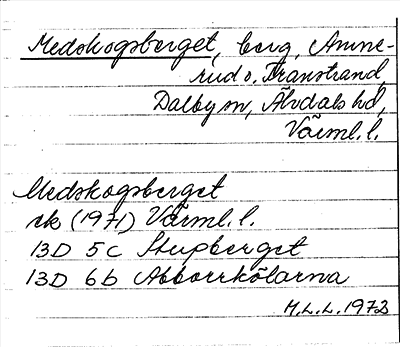 Medskogsberget, berg, Amne-
rud o. Transtrand,
Dalby sn, Älvdals hd,
Värml. l.
Medskogsberget
ek (1971) Värml. l.
13D 5c Stupberget
13D 6b Abborrkölarna
M.L.L. 1973